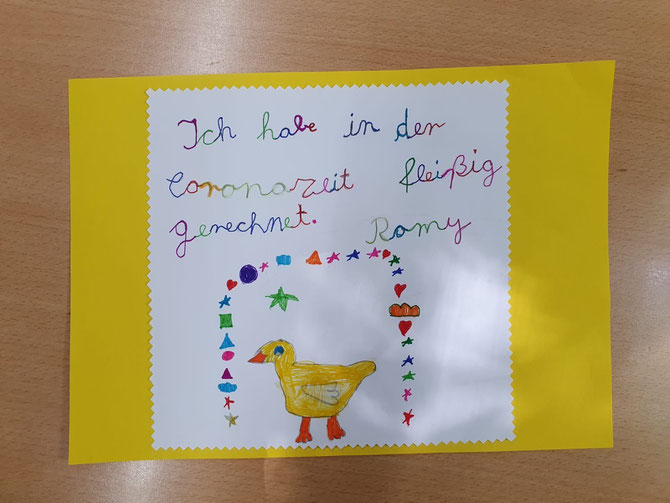 Ich habe in der
Coronazeit fleißig
gerechnet. Romy